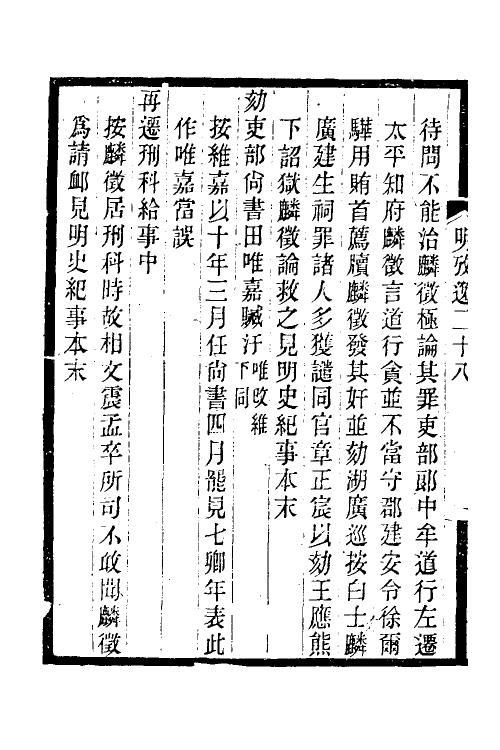 明攷逸二十八
待問不能治麟徵極論其罪吏部郞中牟道行左遷
太平知府麟徵言道行貪並不當守郡建安令徐爾
驊用賄首薦牘麟徵發其奸並劾湖廣巡按白士麟
廣建生祠罪諸人多獲譴同官章正宸以劾王應熊
下詔獄麟徵論救之見明史紀事本末
劾吏部尙書田唯嘉贓汙唯改維下同
按維嘉以十年三月任尙書四月罷見七卿年表此
作唯嘉當誤
再遷刑科給事中
按麟徵居刑科時故相文震孟卒所司不敢聞麟徵
爲請卹見明史紀事本末